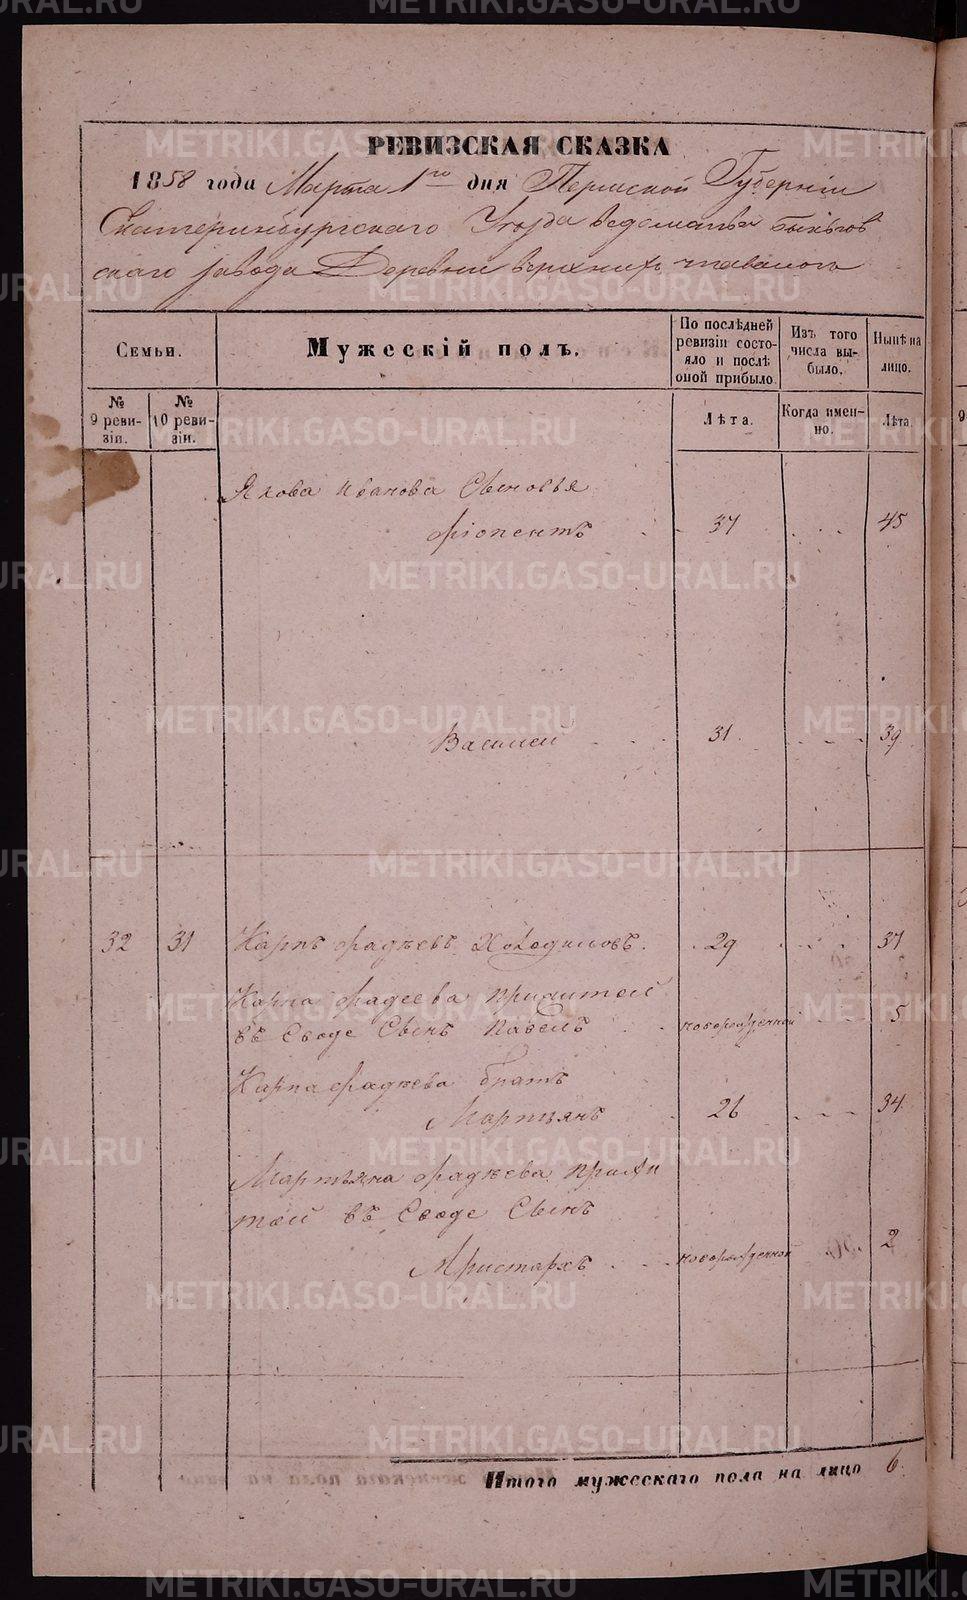 РЕВИЗСКАЯ СКАЗКА
1858 года Марта 1го дня Пермской Губерніи
Екатеринбургскаго Уезда ведомства Быньгов
скаго завода Деревни верхнихъ
Семьи.
Мужескій полъ.
По послѣдней ревизіи состояло и послѣ оной прибыло.
Изъ того числа выбыло.
Нынѣ на лицо.
№ 9 ревизіи.
№ 10 ревизіи.
Лѣта.
Когда именно.
Лѣта.
Якова Иванова Сыновья
Фіопентъ 37 45
Василей 31 39
32 31 Карпъ Фадѣевъ 29 37
Карпа Фадеева прижитой
въ Сводѣ Сынъ Павелъ новорожденной 5
Карпа Фадѣева братъ
Мартьянъ 26 34
Мартьяна Фадѣева прижи
той въ Сводѣ Сынъ
Аристархъ новорожденной 2
Итого мужескаго пола на лицо 6
METRIKI.GASO-URAL.RU